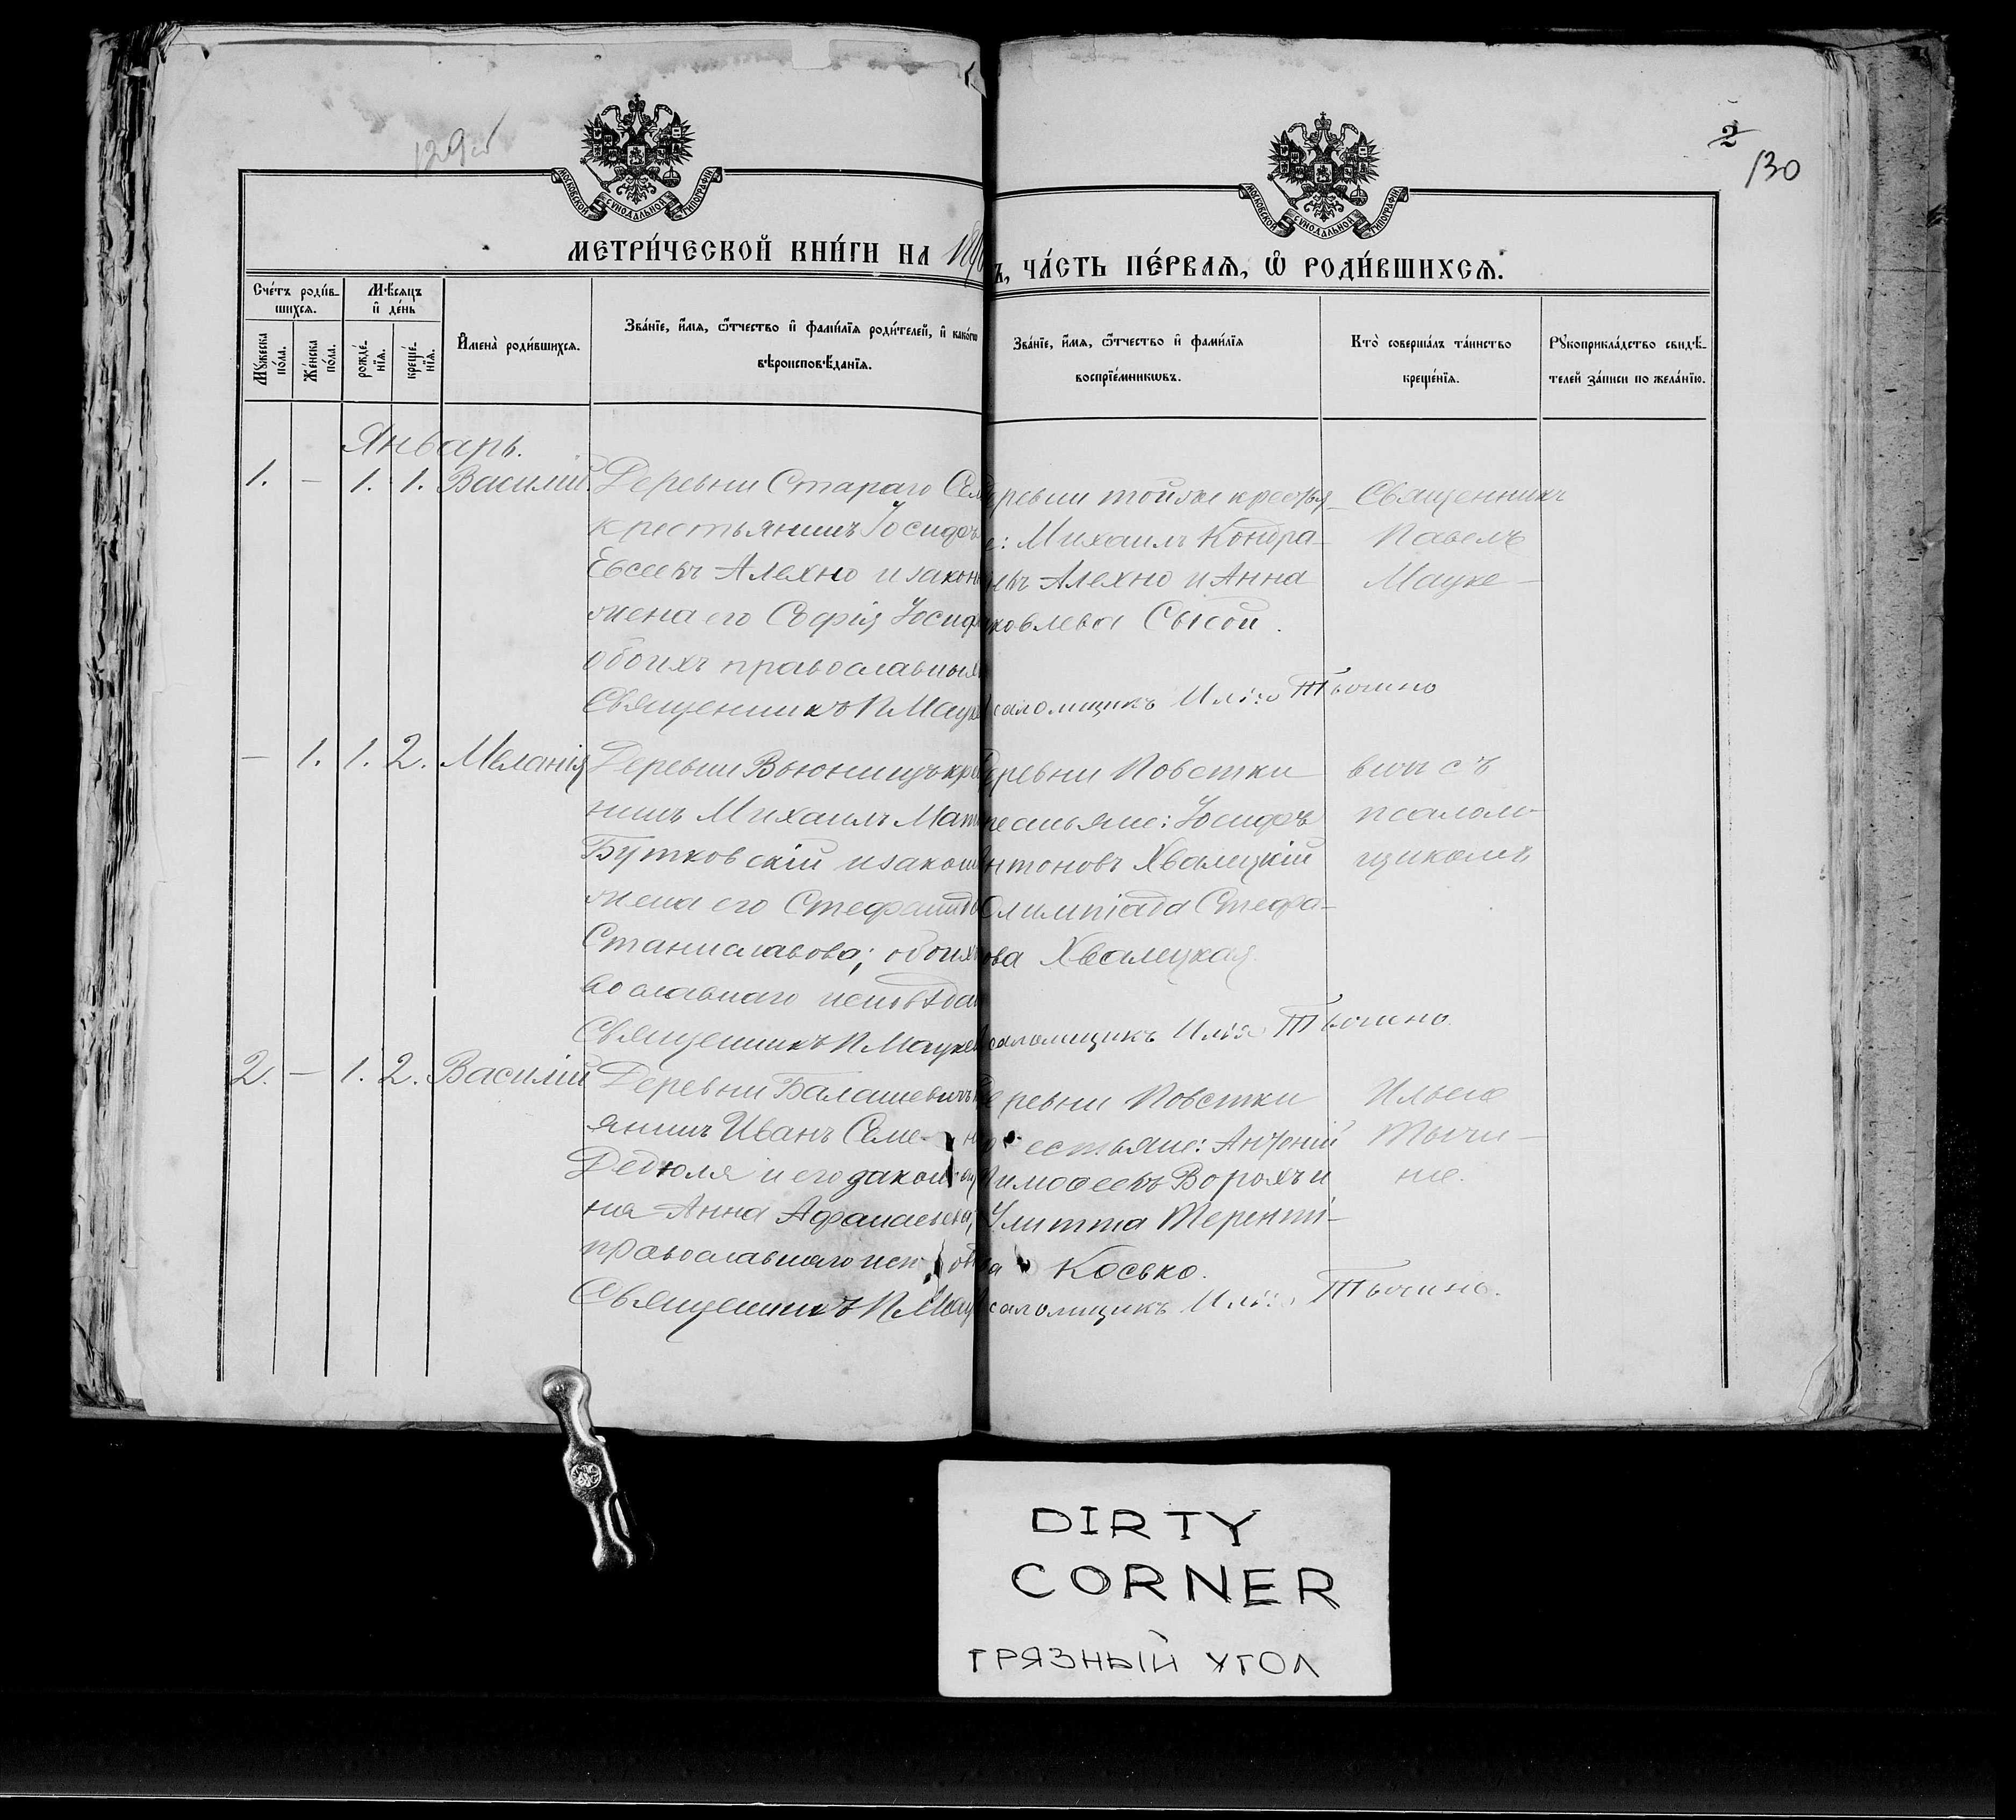 129об
2
130
МОСКОВСКОЙ СУНОДАЛЬНОЙ ТИПОГРАФІИ
МОСКОВСКОЙ СУНОДАЛЬНОЙ ТИПОГРАФІИ
МЕТРИ́ЧЕСКОЙ КНИ́ГИ НА
Ъ, ЧА́СТЬ ПЕ́РВАЯ, Ѽ РОДИ́ВШИХСЯ.
Сче́тъ роди́в-
шихся.
Мѣсяцъ
и҆ де́нь
Мꙋ́жеска
по́ла.
Же́нска
по́ла.
рожде́-
нїя.
креще́-
нїя.
И҆мена̀ роди́вшихся.
Зва́нїе, и҆́мя, ѻ҆́тчество и҆ фами́лїя роди́телей, и҆ како́гѡ
вѣроисповѣ́данїя.
Зва́нїе, и҆́мя, ѻ҆́тчество и҆ фами́лїя
воспрїе́мникѡвъ.
Кто̀ соверша́лъ та́инство
креще́нїя.
Рꙋкоприкла́дство свидѣ́-
телей за́писи по жела́нїю.
Январь.
1. – 1. 1. Василій
Деревни Стараго Сел
крестьянинъ Іосифъ
Евсеевъ Алехно и закон
жена его Софія Іосиф
обоихъ православныхъ
Священникъ П Мауке
еревни тойже крестья-
е: Михаилъ Кондра-
евъ Алехно и Анна
ковлева Сысой.
саломщикъ Илія Тычино
Священникъ
Павелъ
Мауке –
– 1. 1. 2. Меланія
Деревни Вьюницъ кре
нинъ Михаилъ Мат
Бутковскій и закон
жена его Стефанида
Станиславова; обоихъ
вославнаго исповѣдан
Священникъ П Мауке
еревни Повстки
рестьяне: Іосифъ
Антоновъ Хвалецкій
Олимпіада Стефа-
ова Хвалецкая.
саломщикъ Илія Тычино
вмѣстѣ съ
псалом-
щикомъ
2. – 1. 2. Василій
Деревни Балашевичъ
янинъ Иванъ Семе- н
Дедюля и его закон
на Анна Афанасьева,
православнаго исп
Священникъ П Мау
еревни Повстки
естьяне: Антоній
Тимофеевъ Ворохъ и
Улитта Теренті-
ва Косько.
саломщикъ Илія Тычино.
Ильею
Тычи-
но.
DIRTY
CORNER
ГРЯЗНЫЙ УГОЛ